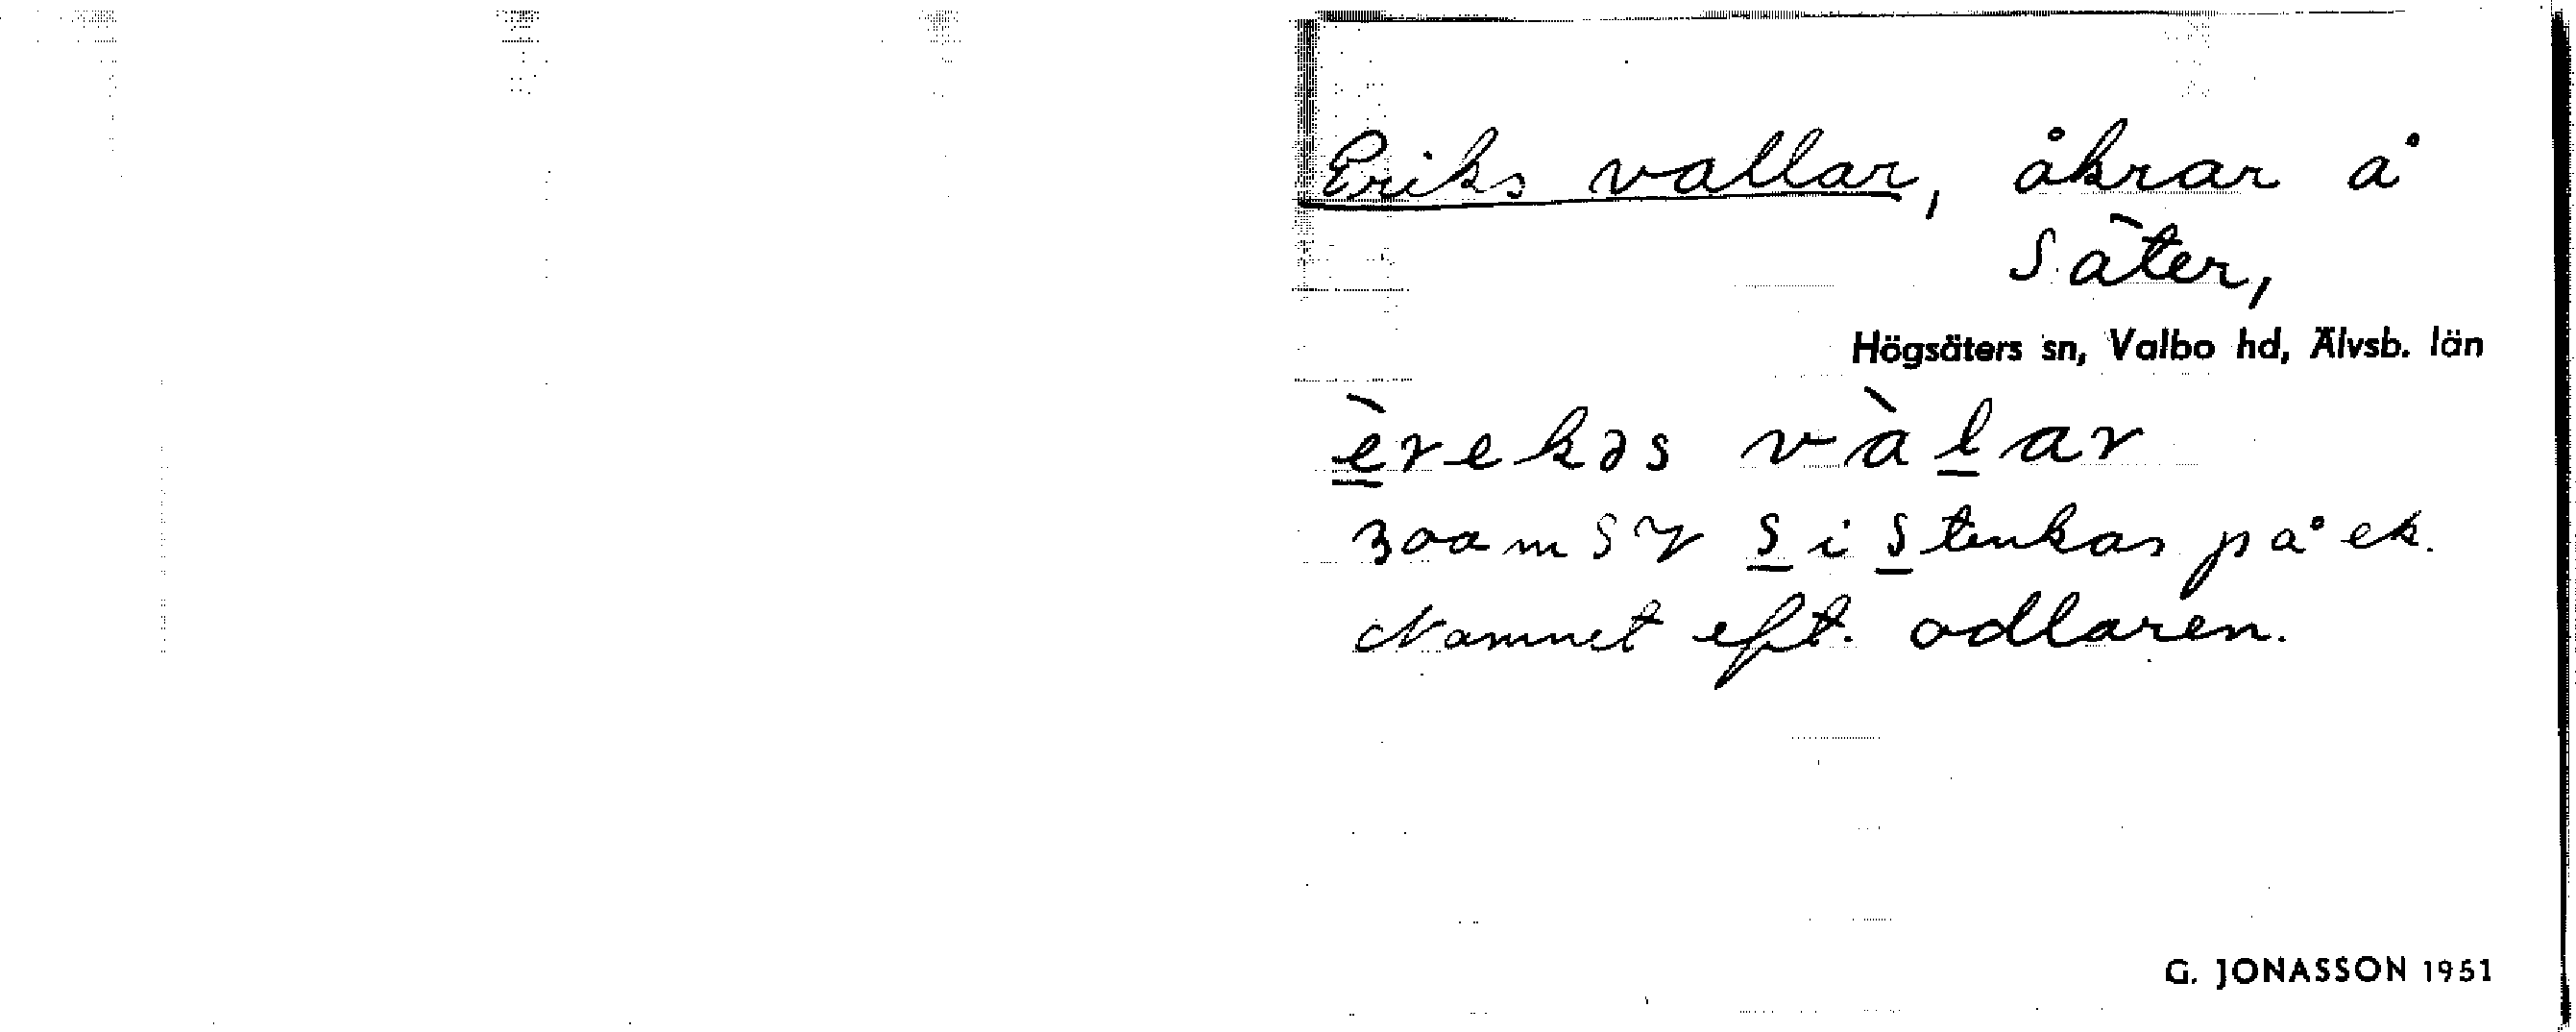 Eriks vallar, åkrar å
Säter,
Högsäters sn, Valbo hd, Älvsb. län
èrekəs vàlar
300 m SV S i Stenkas på ek.
Namnet eft. odlaren.
G. JONASSON 1951